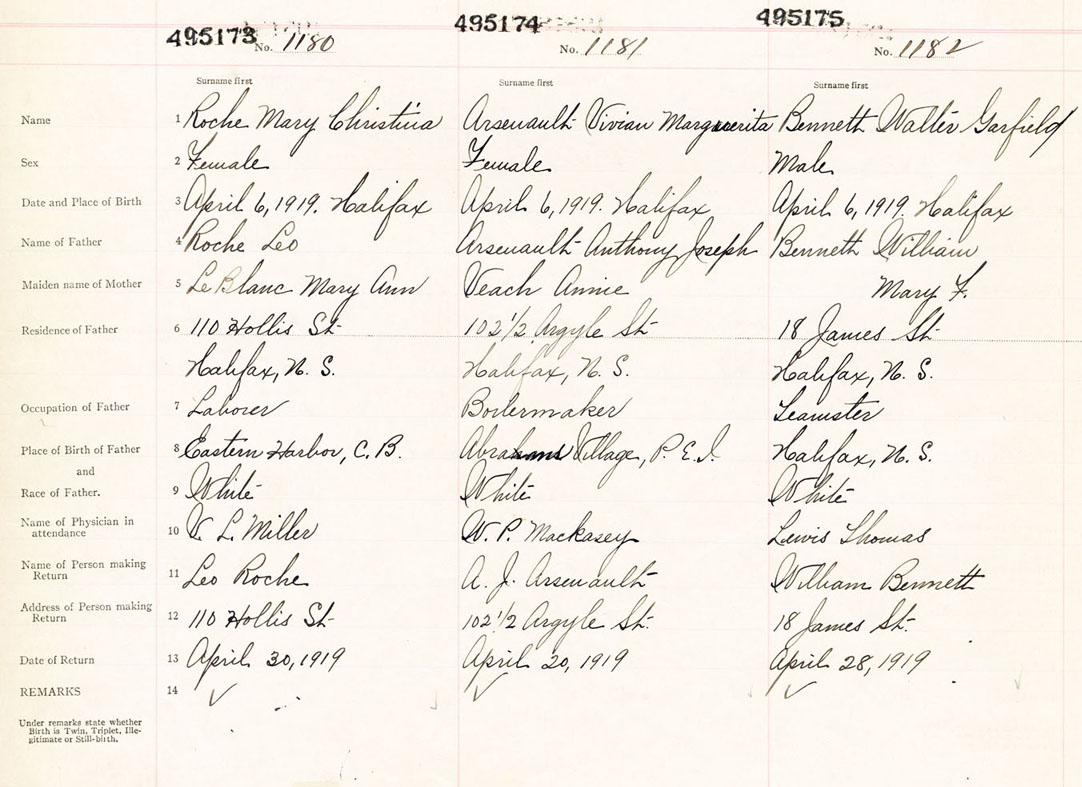 495173 495174 495175
No. 1180 No. 1181 No. 1182
Surname first Surname first Surname first
Name 1 Roche Mary Christina Arsenault Vivian Marguerita Bennett Walter Garfield
Sex 2 Female Female Male
Date and Place of Birth 3 April 6, 1919. Halifax April 6, 1919. Halifax April 6, 1919. Halifax
Name of Father 4 Roche Leo Arsenault Anthony Joseph Bennett William
Maiden name of Mother 5 Le Blanc Mary Ann Veach Annie Mary F.
Residence of Father 6 110 Hollis St 102 1/2 Argyle St 18 James St
Halifax, N. S. Halifax, N. S. Halifax, N. S.
Occupation of Father 7 Laborer Boilermaker Teamster
Place of Birth of Father 8 Eastern Harbor, C. B. Abrahams Village, P. E. I. Halifax, N. S.
and
Race of Father. 9 White White White
Name of Physician in
attendance 10 V. L. Miller W. P. Mackasey Lewis Thomas
Name of Person making
Return 11 Leo Roche A. J. Arsenault William Bennett
Address of Person making
Return 12 110 Hollis St 102 1/2 Argyle St. 18 James St.
Date of Return 13 April 30, 1919 April 20, 1919 April 28, 1919
REMARKS 14
Under remarks state whether
Birth is Twin, Triplet, Ille-
gitimate or Still-birth.